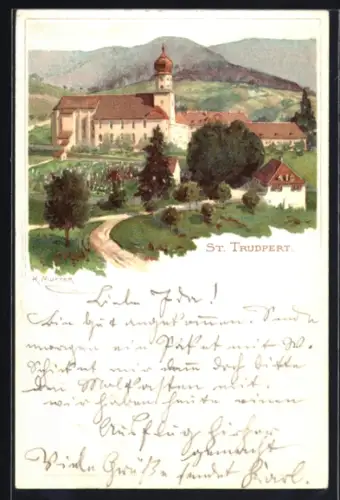 ST. TRUDPERT.
K. MUTTER
Liebe Ida!
Bin gut angekommen. Sende
morgen ein Paket mit W.
Schickst mir dann doch bitte
den Malkasten mit.
wir haben heute einen
Ausflug hierher
gemacht
Viele Grüße sendet Karl.